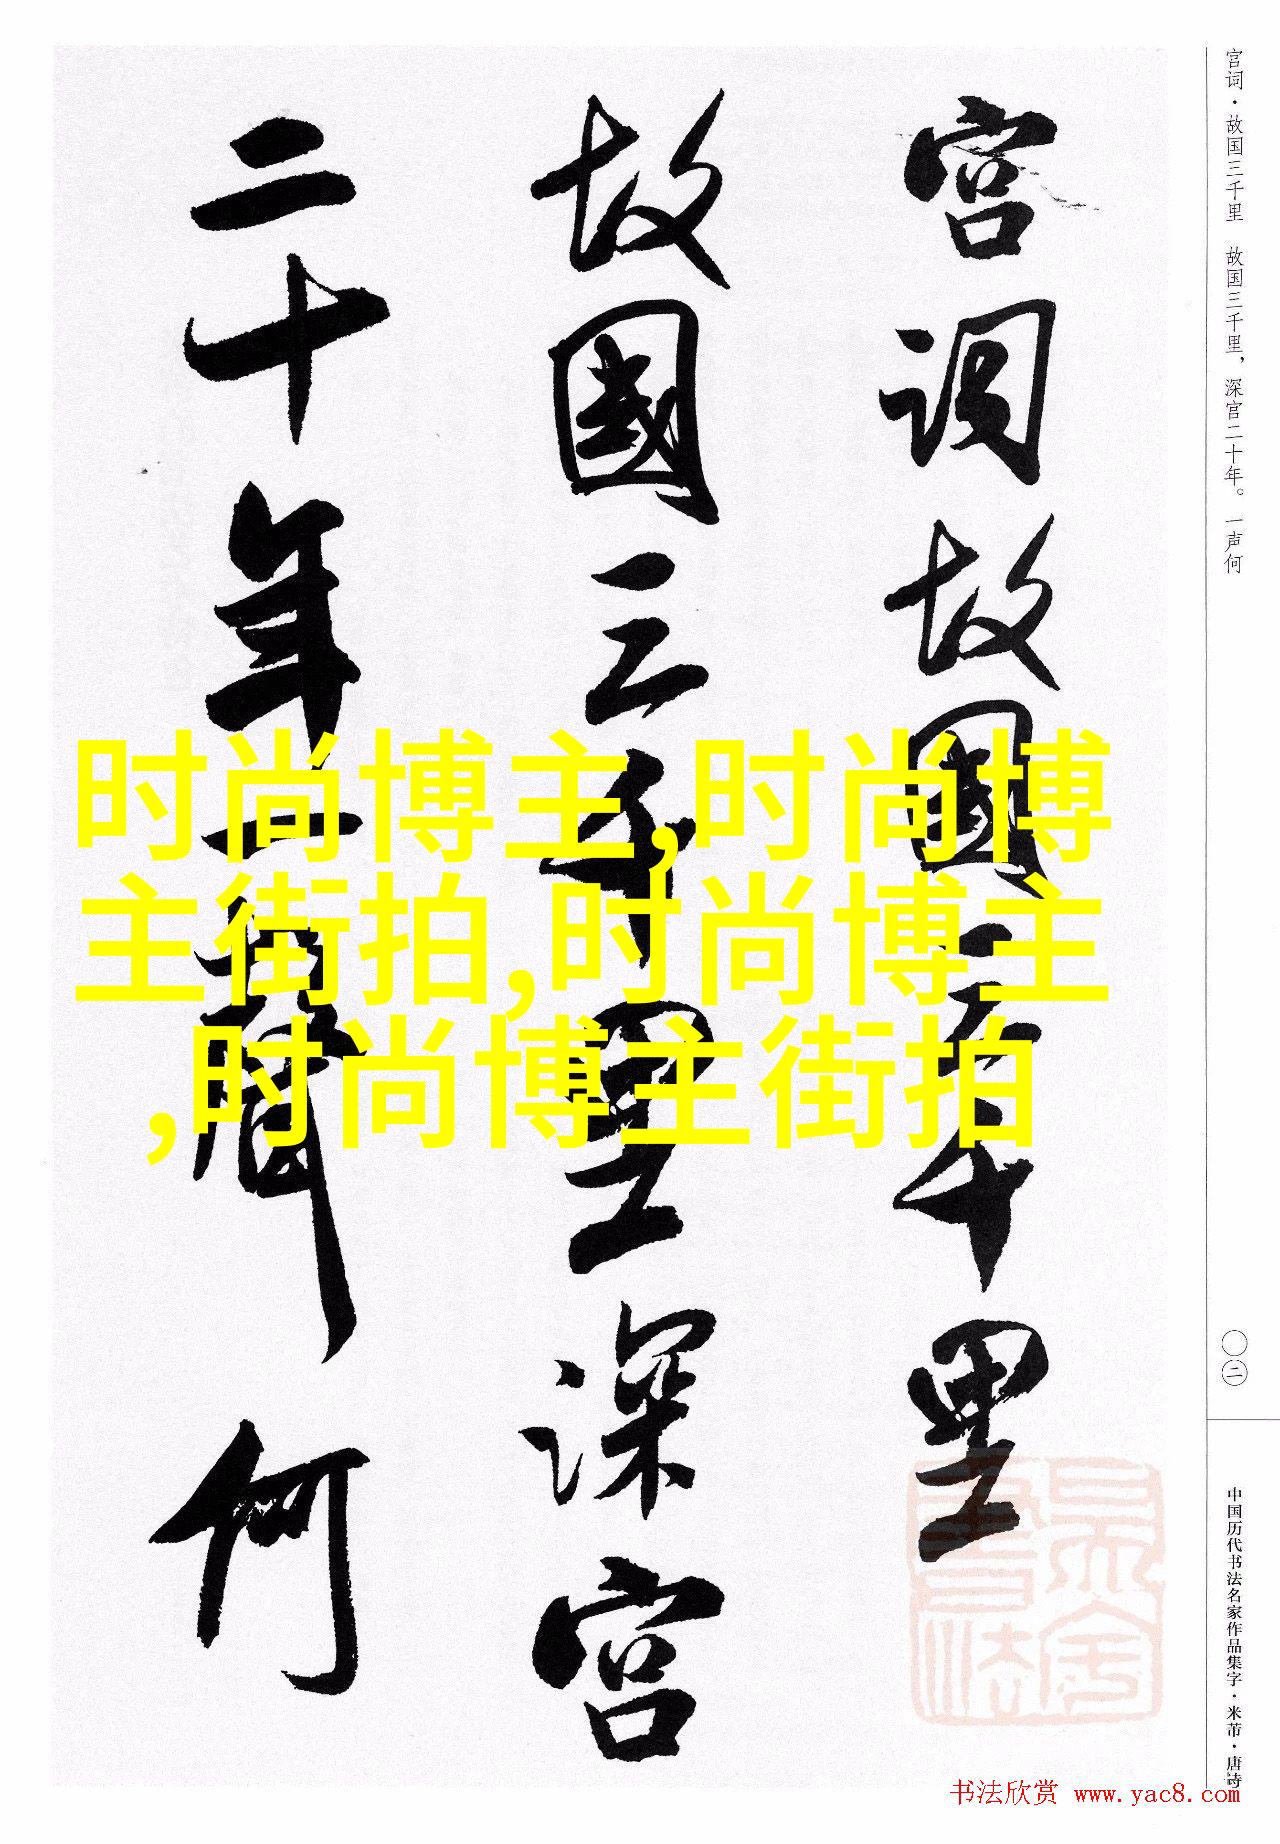 宫词故國三千里
故國三千里深宫
二十年一聲何
宫词·故国三千里 故国三千里，深宫二十年。一声何
〇二
中国历代书法名家作品集字·米芾·唐诗
时尚博主,时尚博
主街拍,时尚博主
,时尚博主街拍
书法欣赏 www.yac8.com